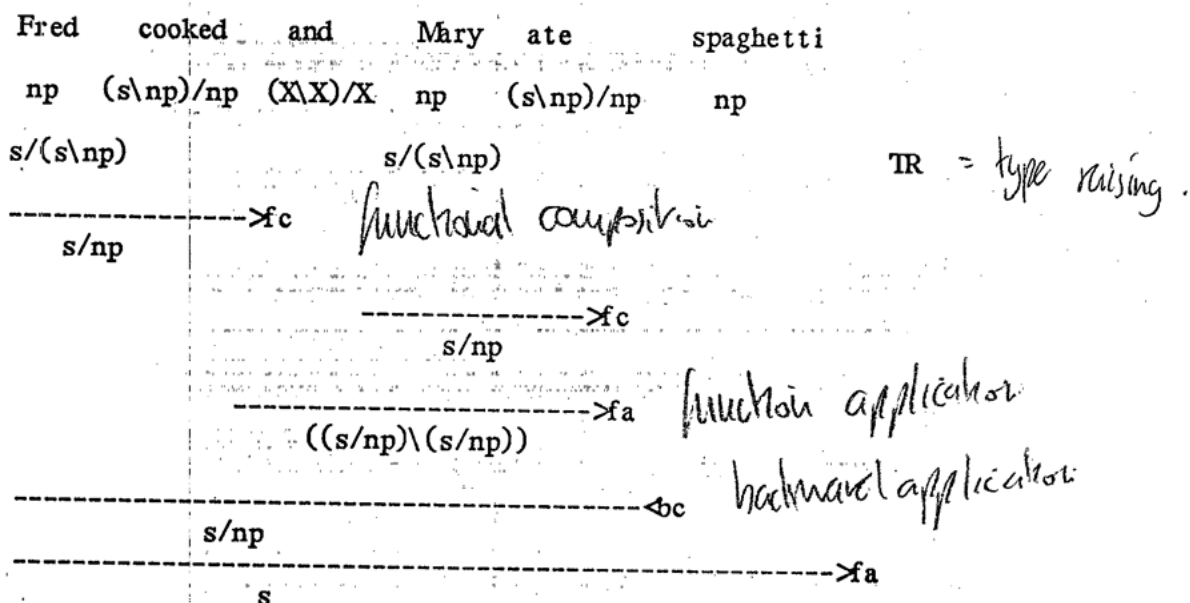 Fred cooked and Mary ate spaghetti
np (s\np)/np (X\X)/X np (s\np)/np np
s/(s\np) s/(s\np) TR = type raising.
------------------>fc functional composition
s/np
----------------->fc
s/np
--------------------------->fa function application
((s/np)\(s/np))
------------------------------------------------<bc backward application
s/np
--------------------------------------------------------------->fa
s